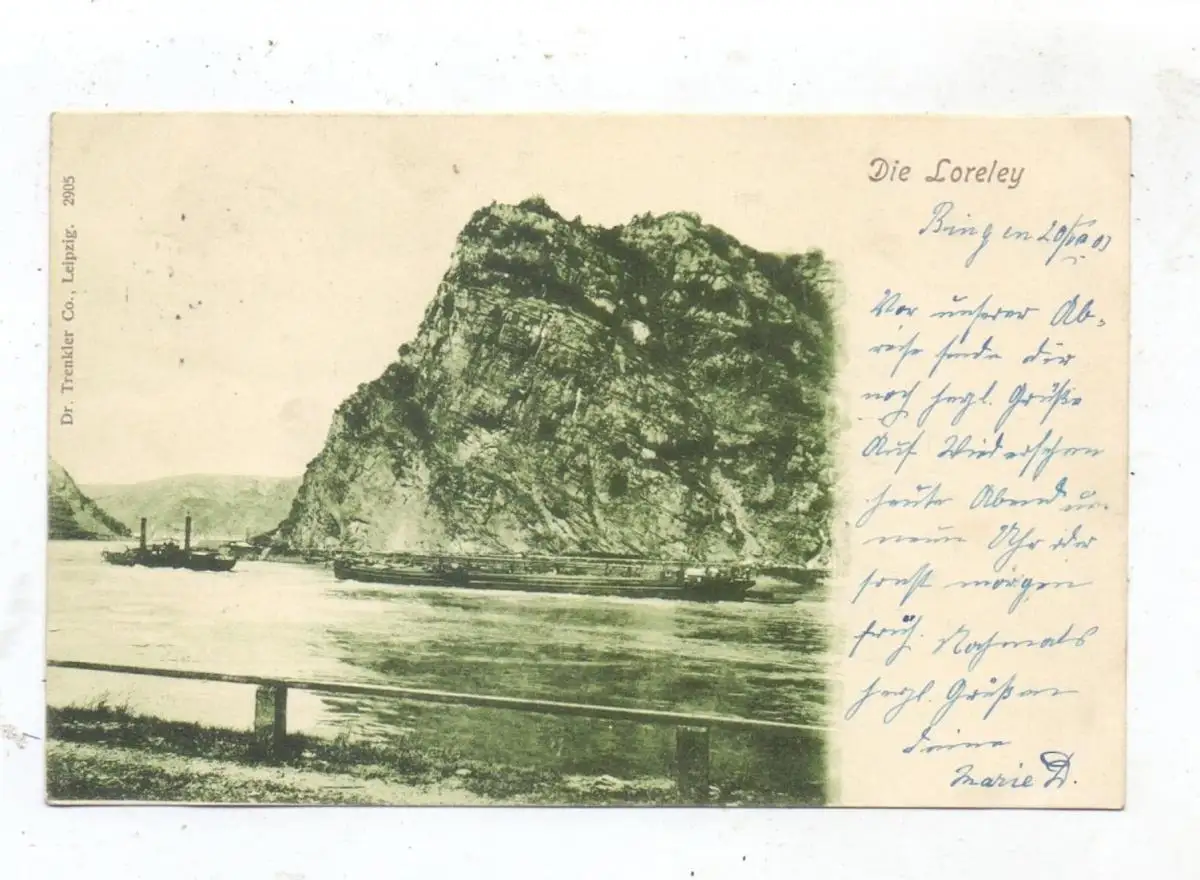 Dr. Trenkler Co., Leipzig. 2905
Die Loreley
Bingen 20/VII 03
Vor unserer Ab-
reise sende dir
noch herzl. Grüße
Auf Wiedersehen
heute Abend um
neun Uhr oder
sonst morgen
früh. Nochmals
herzl. Grüßen
Deine
Marie D.